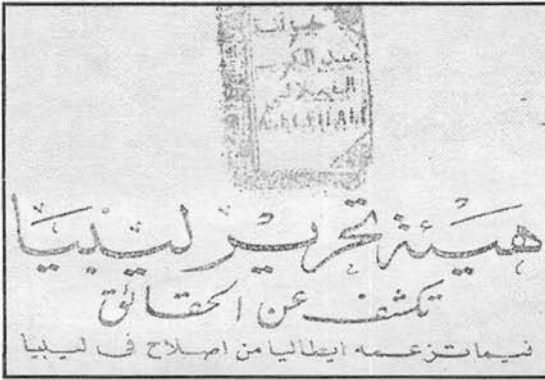 هيئة تحرير ليبيا
تكشف عن الحقائق
فيما تزعمه ايطاليا من اصلاح في ليبيا